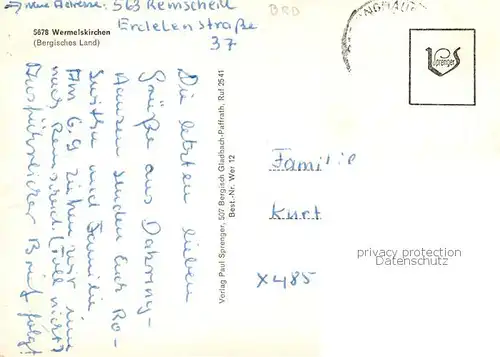 → neue Adresse: 563 Remscheid
Erdelenstraße
37
BRD
5678 Wermelskirchen
(Bergisches Land)
Sprenger
Die letzten lieben
Grüße aus Dabring-
hausen senden Euch Ro-
switha und Familie
Am 6.9 ziehen wir um
nach Remscheid. (Toll nicht?)
Ausführlicher Brief folgt!
Verlag Paul Sprenger, 507 Bergisch Gladbach-Paffrath, Ruf 2541
Best.-Nr. Wer 12
Familie
Kurt
privacy protection
Datenschutz
X485